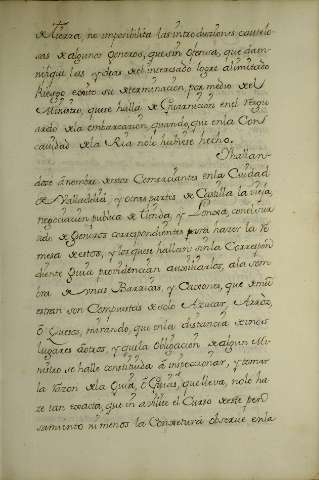 de tierra, no imposibilita las introduziones, cautelo
sas de algunos Generos, que sin
que los
Riesgo exiito su determinacion por medio del
Ministro, que se halla de Guarnicion en el Resgu
ardo de la embarcacion, quando, que en la Con
cavidad de la Ria no le hubiese hecho.
Ohallan
dose a nombre de esos Comerciantes en la Ciudad
de Valladolid, y otras partes de Castilla la vieja,
negociacion publica de tienda, y Lonxa, con el sur
tido de Generos correspondientes para hazer la Re
mesa de estos, y los que se hallan sin la Correspon
diente Guia providencian auxiliarlos, a la som
bra de unas Barricas, y Caxones, que demu
estran son Compuestos de solo Azucar, Arroz,
ô Quesos, mirando, que en la distancia de unos
lugares âotros, y que la obligacion de algun Mi
nistro se halle constituida â inspeccionar, y tomar
la razon de la Guia, ô Guias, que lleva, no le ha
ze tan exacta, que in abilite el Curso de este pen
samiento ni menos la Conjetura observe en la